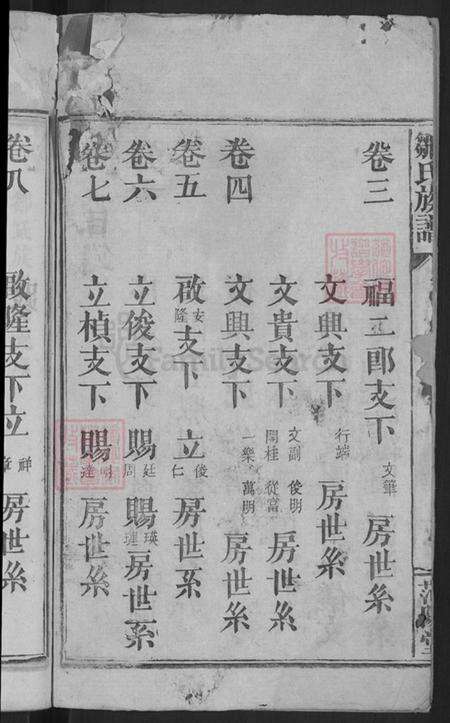 鄒氏族譜
卷三
福二郎支下 文華 房世系
文興支下 行端 房世系
文貴支下 文副 俊明 開桂 從富 房世系
卷四
文興支下 一樂 萬明 房世系
卷五
啟安隆支下 立俊仁 房世系
卷六
立俊支下 賜廷周 賜瑛璉 房世系
卷七
立楨支下 賜明達 房世系
卷八
啟隆支下立祥 房世系
FamilySearch